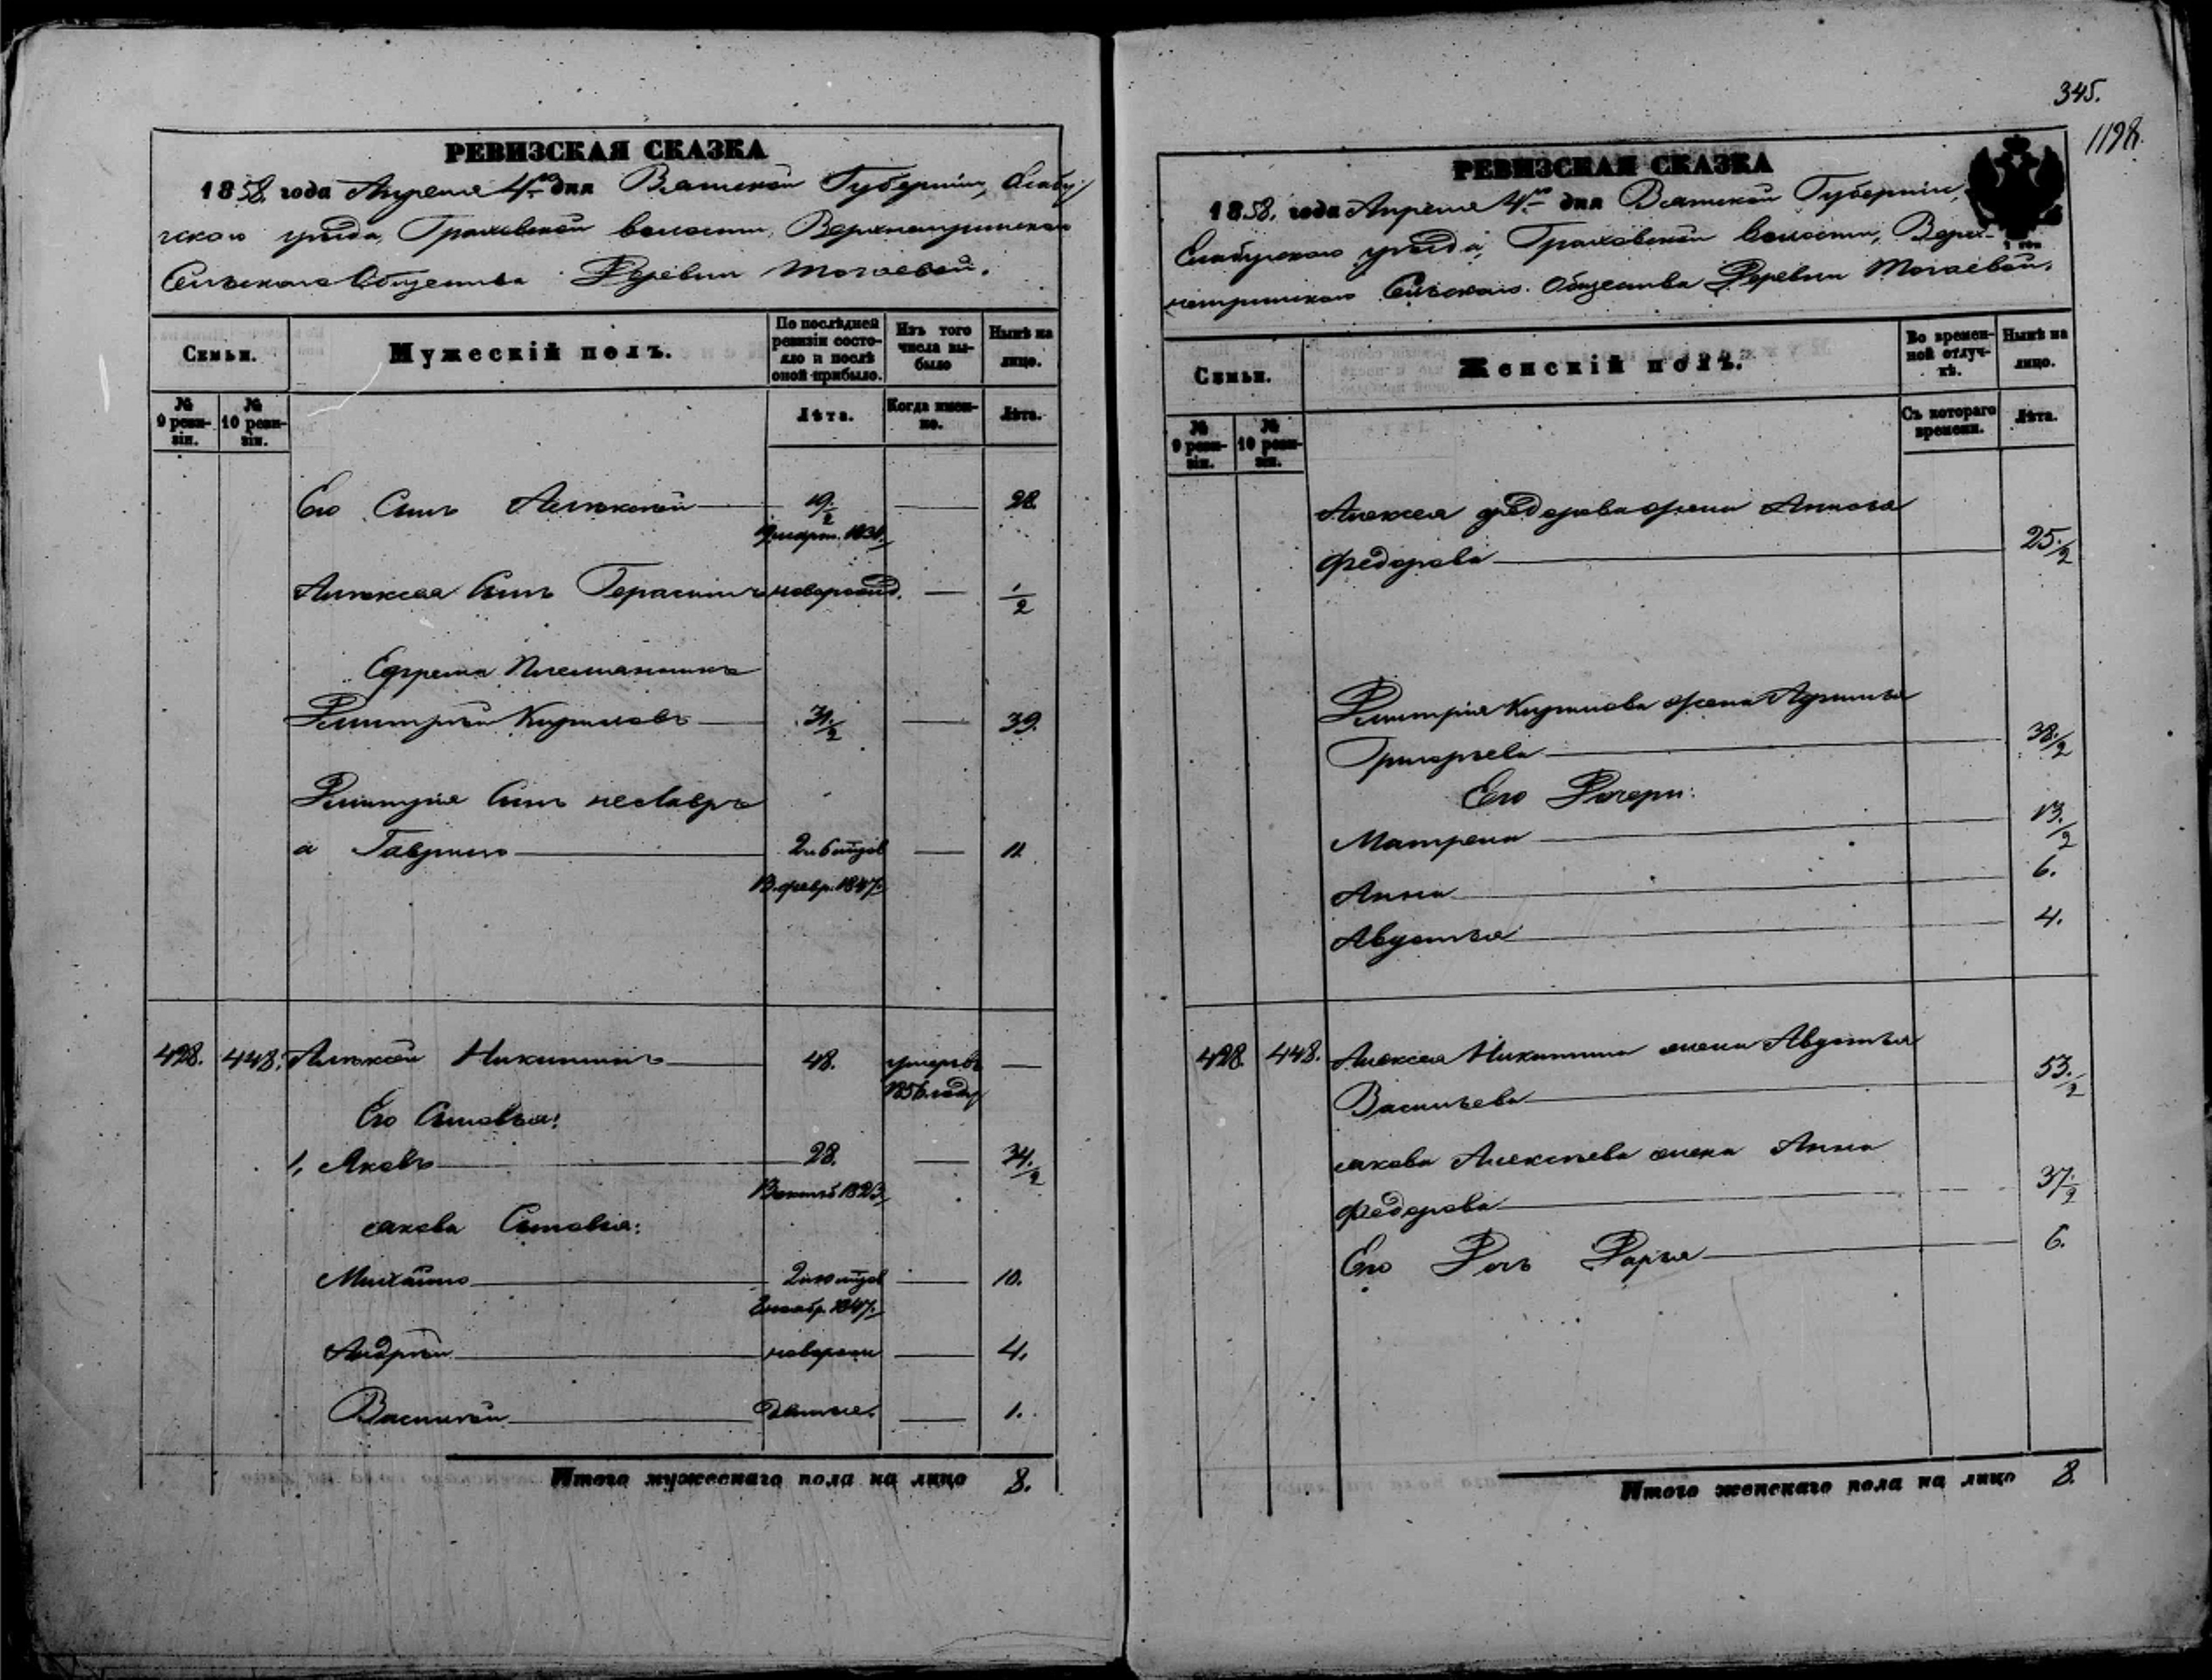 РЕВИЗСКАЯ СКАЗКА
1858. года Апреля 4го дня Вятской Губернии, Елабу-
гскаго уезда, Граховской волости, Верхнетрынскаго
Сельскаго Общества Деревни Тогаевой.
Семьи.
Мужескій полъ.
По послѣдней ревизіи состояло и послѣ оной прибыло.
Изъ того числа выбыло
Нынѣ на лицо.
№ 9 ревизіи.
№ 10 ревизіи.
Лѣта.
Когда именно.
Лѣта.
Его Сынъ Алексѣй 19/2 28.
Алексея Сынъ Герасимъ новорожд. 1/2
Ефрема Племянникъ
Дмитрій Кириловъ 31/2 39.
Дмитрія Сынъ не Лавръ
а Гаврило 2 и 6 мцов 11.
13 февр. 1847.
428. 448. Алексѣй Никитинъ 48. умеръ въ
1856 году
Его Сыновья:
1, Яковъ 28. 34./2
Якова Сыновья:
Михайло 2 и 10 мцов 10.
1847.
Андрей новорож 4.
Василей денные. 1.
Итого мужескаго пола на лицо 8.
345.
1198.
РЕВИЗСКАЯ СКАЗКА
1858. года Апреля 4го дня Вятской Губернии,
Елабугскаго уезда, Граховской волости, Верх-
нетрынскаго Сельскаго Общества Деревни Тогаевой.
Семьи.
Женскій полъ.
Во временной отлучкѣ.
Нынѣ на лицо.
№ 9 ревизіи.
№ 10 ревизіи.
Съ котораго времени.
Лѣта.
Алексея Федорова жена
Федорова 25./2
Дмитрія Кирилова жена
Григорьева 38./2
Его Дочери:
Матрена 13./2
Анна 6.
Авдотья 4.
428. 448. Алексея Никитина жена Авдотья
Васильева 53./2
Якова Алексѣева жена Анна
Федорова 37/2
Его Дочь Дарья 6.
Итого женскаго пола на лицо 8.